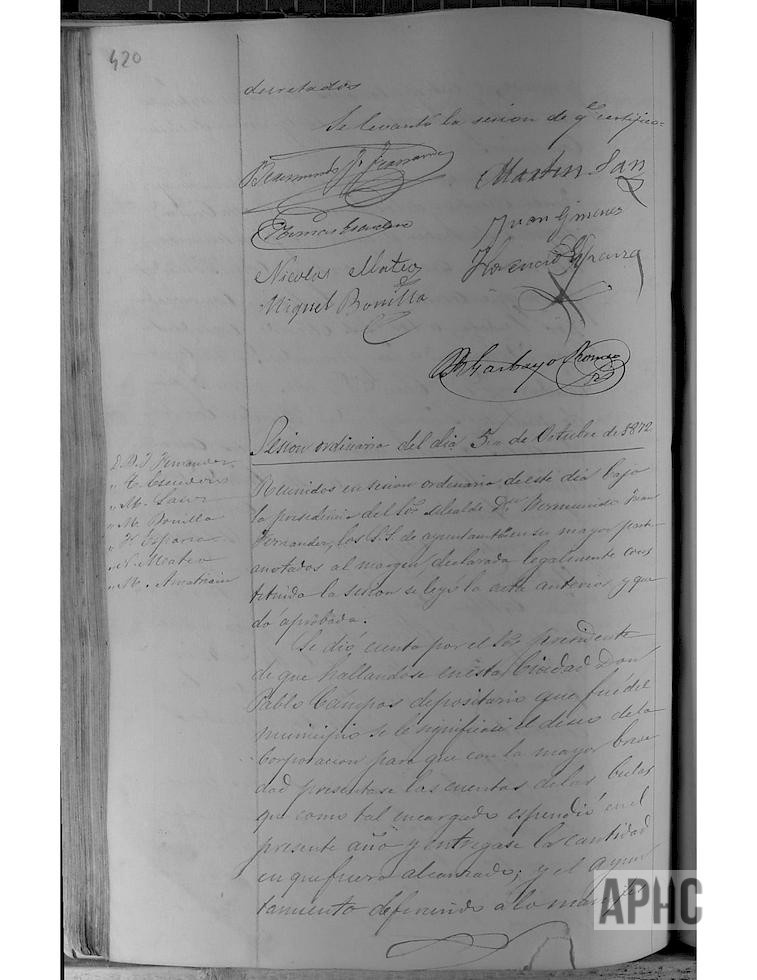 420
decretados
Se levantó la sesion de q.e certifico=
Martin San
Juan Gimenez
Nicolas Mateo
Florencio Esparza
Miguel Bonilla
Garbayo Romeo
Sesion ordinaria del dia 5 de Octubre de 1872
D. B. J. Fernandez
" M. Bonilla
" F. Esparza
" N. Mateo
" M. Amatriain
Reunidos en sesion ordinaria de este dia bajo
la presidencia del Sor. Alcalde Dn. Bermundo Juan
Fernandez, los S.S. de ayuntamto. en su mayor parte
anotados al margen, declarada legalmente cons
tituida la sesion se leyó la acta anterior, y que
dó aprobada.
Se dió cuenta por el Sor. presidente
de que hallandose en esta Ciudad Don
Pablo Campos depositario que fué del
municipio se le significase el deseo de la
Corporacion para que con la mayor breve
dad presentase las cuentas de las bulas
que como tal encargado espendió en el
presente año y entregase la cantidad
en que fuera alcanzado; y el Ayun
tamiento defiriendo a lo manifes
APHC